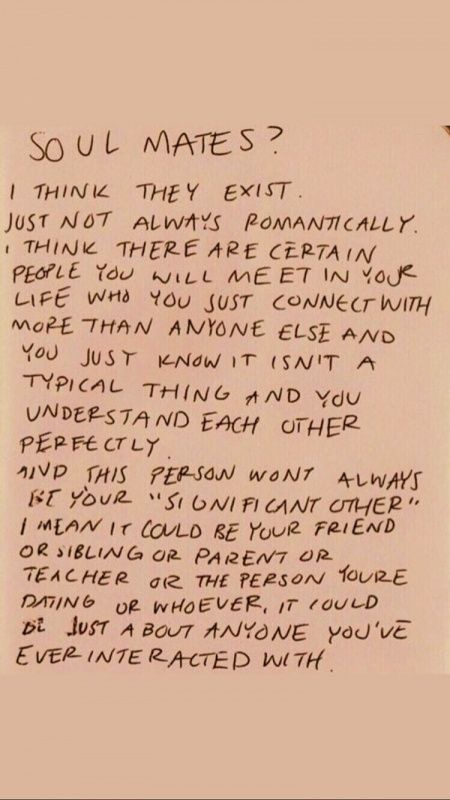 SOUL MATES?
I THINK THEY EXIST.
JUST NOT ALWAYS ROMANTICALLY.
I THINK THERE ARE CERTAIN
PEOPLE YOU WILL MEET IN YOUR
LIFE WHO YOU JUST CONNECT WITH
MORE THAN ANYONE ELSE AND
YOU JUST KNOW IT ISN'T A
TYPICAL THING AND YOU
UNDERSTAND EACH OTHER
PERFECTLY.
AND THIS PERSON WONT ALWAYS
BE YOUR "SIGNIFICANT OTHER"
I MEAN IT COULD BE YOUR FRIEND
OR SIBLING OR PARENT OR
TEACHER OR THE PERSON YOURE
DATING OR WHOEVER, IT COULD
BE JUST ABOUT ANYONE YOU'VE
EVER INTERACTED WITH.